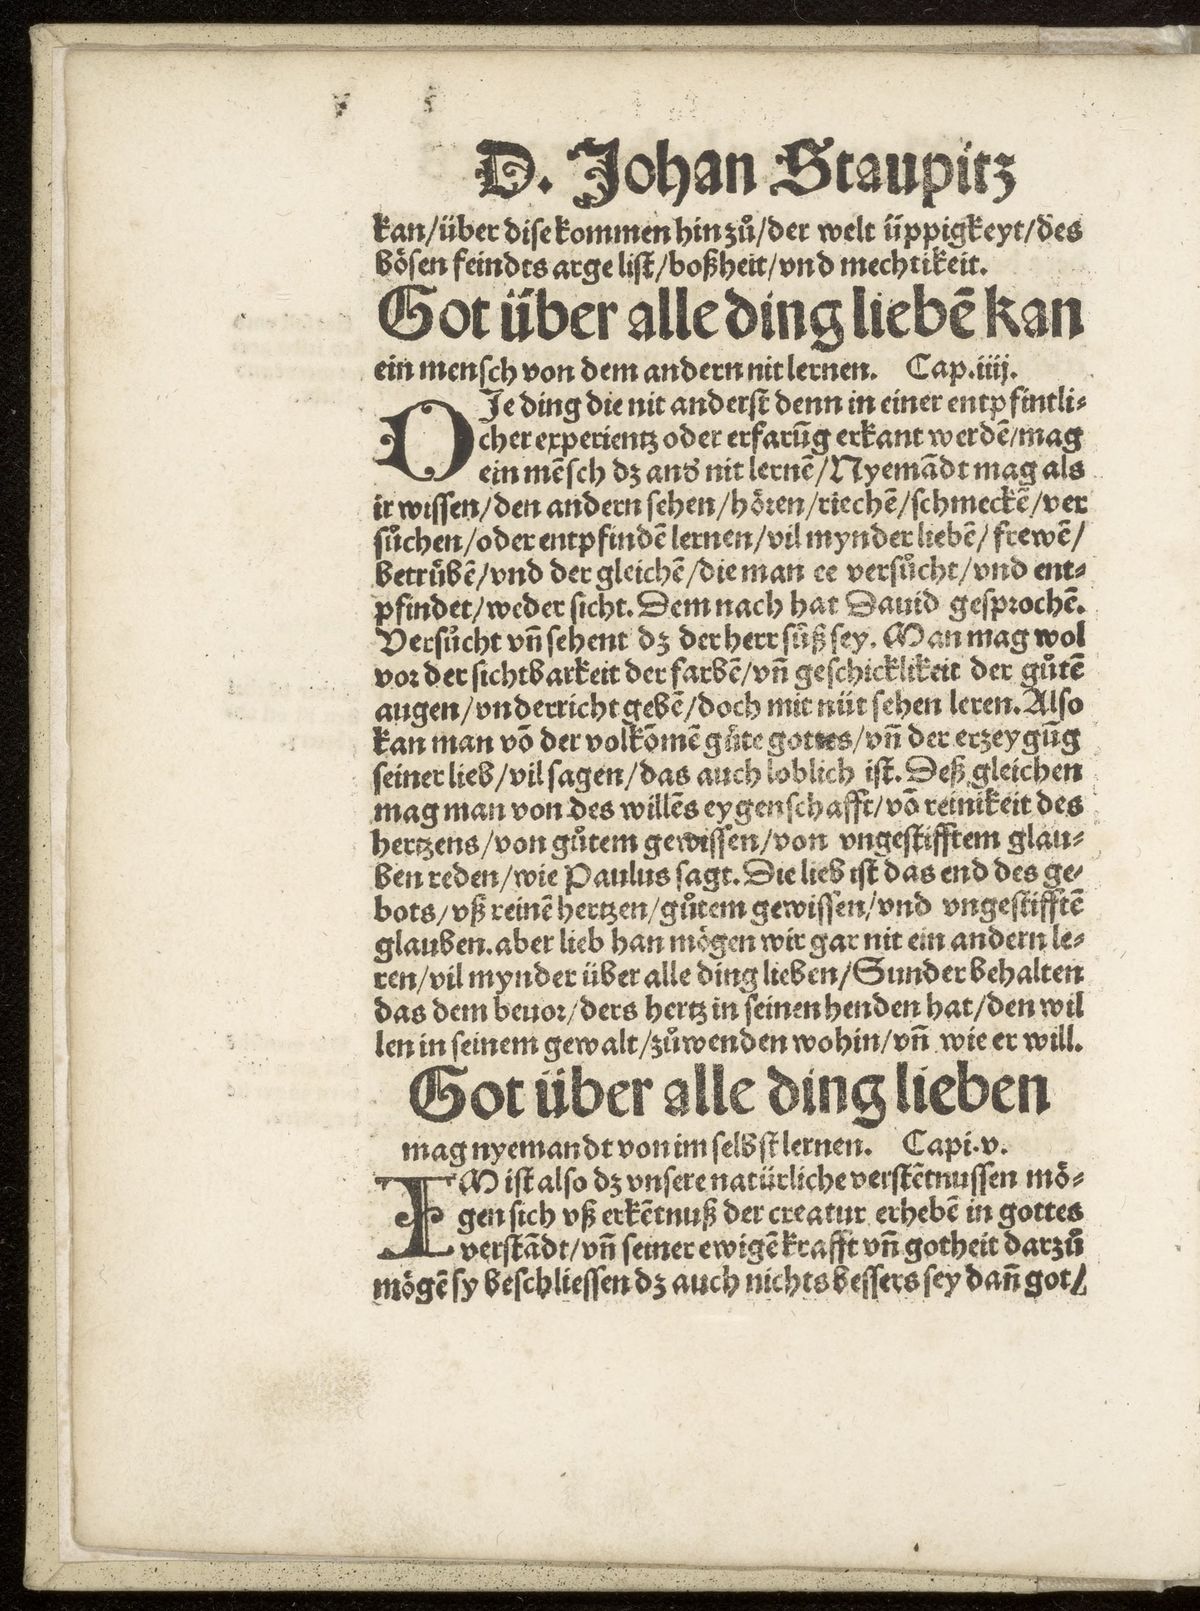 D. Johan Staupitz
kan/über dise kommen hinzů/der welt üppigkeyt/des
bösen feindts arge list/boßheit/vnd mechtikeit.
Got über alle ding liebē kan
ein mensch von dem andern nit lernen. Cap.iiij.
DJe ding die nit anderst denn in einer entpfintli-
cher experientz oder erfarūg erkant werdē/mag
ein mēsch dz and' nit lernē/Nyemādt mag als
ir wissen/den andern sehen/hören/riechē/schmeckē/ver
sůchen/oder entpfindē lernen/vil mynder liebē/frewē/
betrübē/vnd der gleichē/die man ee versůcht/vnd ent-
pfindet/weder sicht. Dem nach hat Dauid gesprochē.
Versůcht vn̄ sehent dz der herr süß sey. Man mag wol
vor der sichtbarkeit der farbē/vn̄ geschicklikeit der gůtē
augen/vnderricht gebē/doch mit nüt sehen leren. Also
kan man vō der volkōmē güte gottes/vn̄ der erzeygūg
seiner lieb/vil sagen/das auch loblich ist. Deß gleichen
mag man von des willēs eygenschafft/vō reinikeit des
hertzens/von gůtem gewissen/von vngestifftem glau-
ben reden/wie Paulus sagt. Die lieb ist das end des ge-
bots/vß reinē hertzen/gůtem gewissen/vnd vngestifftē
glauben. aber lieb han mögen wir gar nit ein andern le-
ren/vil mynder über alle ding lieben/Sunder behalten
das dem beuor/ders hertz in seinen henden hat/den wil
len in seinem gewalt/zůwenden wohin/vn̄ wie er will.
Got über alle ding lieben
mag nyemandt von im selbst lernen. Capi.v.
IM ist also dz vnsere natürliche verstētnussen mö-
gen sich vß erkētnuß der creatur erhebē in gottes
verstādt/vn̄ seiner ewigē krafft vn̄ gotheit darzů
mögē sy beschliessen dz auch nichts bessers sey dan̄ got/